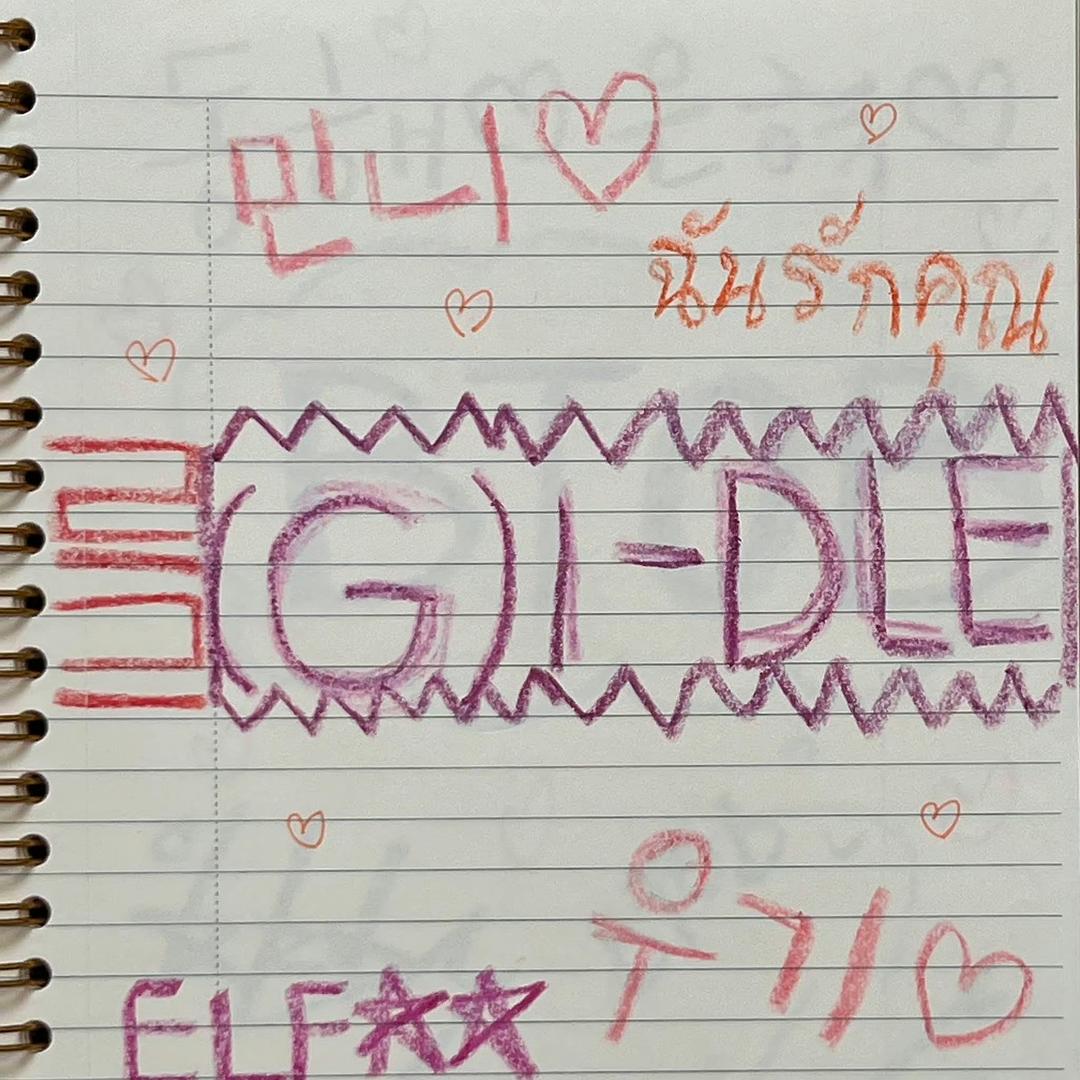 민니♡
ฉันรักคุณ
(G)I-DLE
우기♡
ELF★★